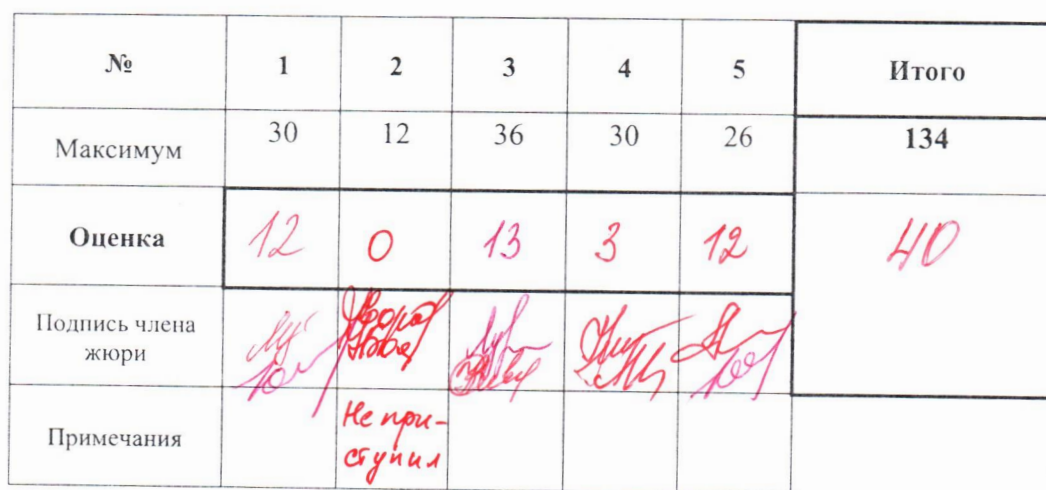 № 1 2 3 4 5 Итого
Максимум 30 12 36 30 26 134
Оценка 12 0 13 3 12 40
Подпись члена
жюри
Примечания
Не при-
ступил